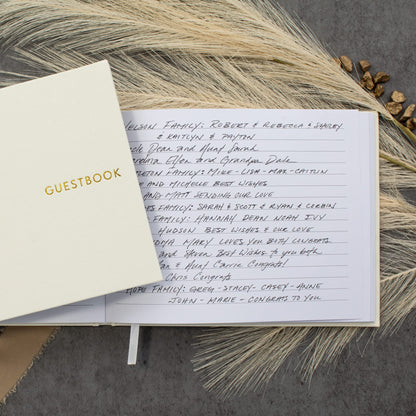 GUESTBOOK
NELSON FAMILY: ROBERT & REBECCA & SHAILEY
& KAITLYN & PAYTON
Uncle Dean and Aunt Sarah
Grandma Ellen and Grandpa Dale
FAMILY: MIKE - LISA - MAX - CAITLIN
AND MICHELLE BEST WISHES
AND MATT SENDING OUR LOVE
FAMILY: SARAH & SCOTT & RYAN & CORBIN
FAMILY: HANNAH DEAN NOAH IVY
HUDSON BEST WISHES & OUR LOVE
MARY LOVES YOU BOTH CONGRATS
and Steven Best Wishes to you both
& Aunt Carrie Congrats!
Chris Congrats
HOPE FAMILY: GREG - STACEY - CASEY - ANNE
JOHN - MARIE - CONGRATS TO YOU